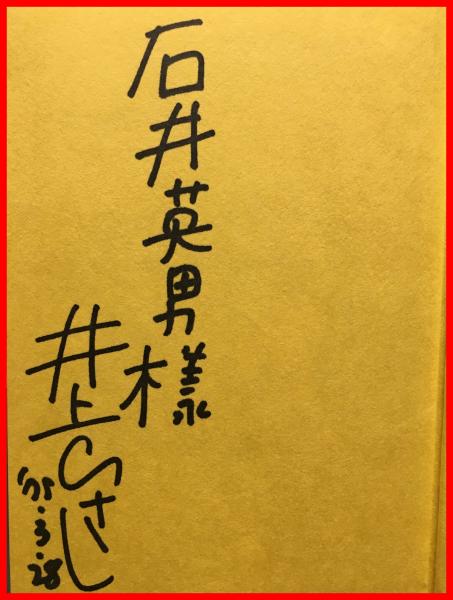 石井英男様
井上ひさし
'75.3.28